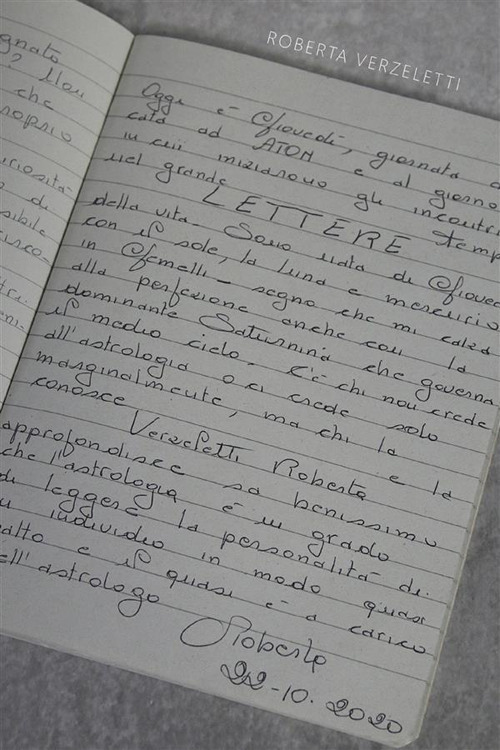 ROBERTA VERZELETTI
gnato
che
roprio
uriosità
di
sibile
risco-
tra
eni-
Oggi è Giovedì, giornata
cata ad ATON e al giorno
in cui iniziarono gli incontri
nel grande LETTERE temp
della vita- Sono nata di Giove
con il sole, la luna e mercurio
in Gemelli - segno che mi calza
alla perfezione anche con la
dominante Saturnina che governa
il medio cielo. C'è chi non crede
all'astrologia o ci crede solo
marginalmente, ma chi la
conosce Verzeletti Roberta e la
approfondisce sa benissimo
che l'astrologia è in grado
di leggere la personalità di
individuo in modo quasi
e il quasi è a carico
ell'astrologo
Roberta
22-10.2020